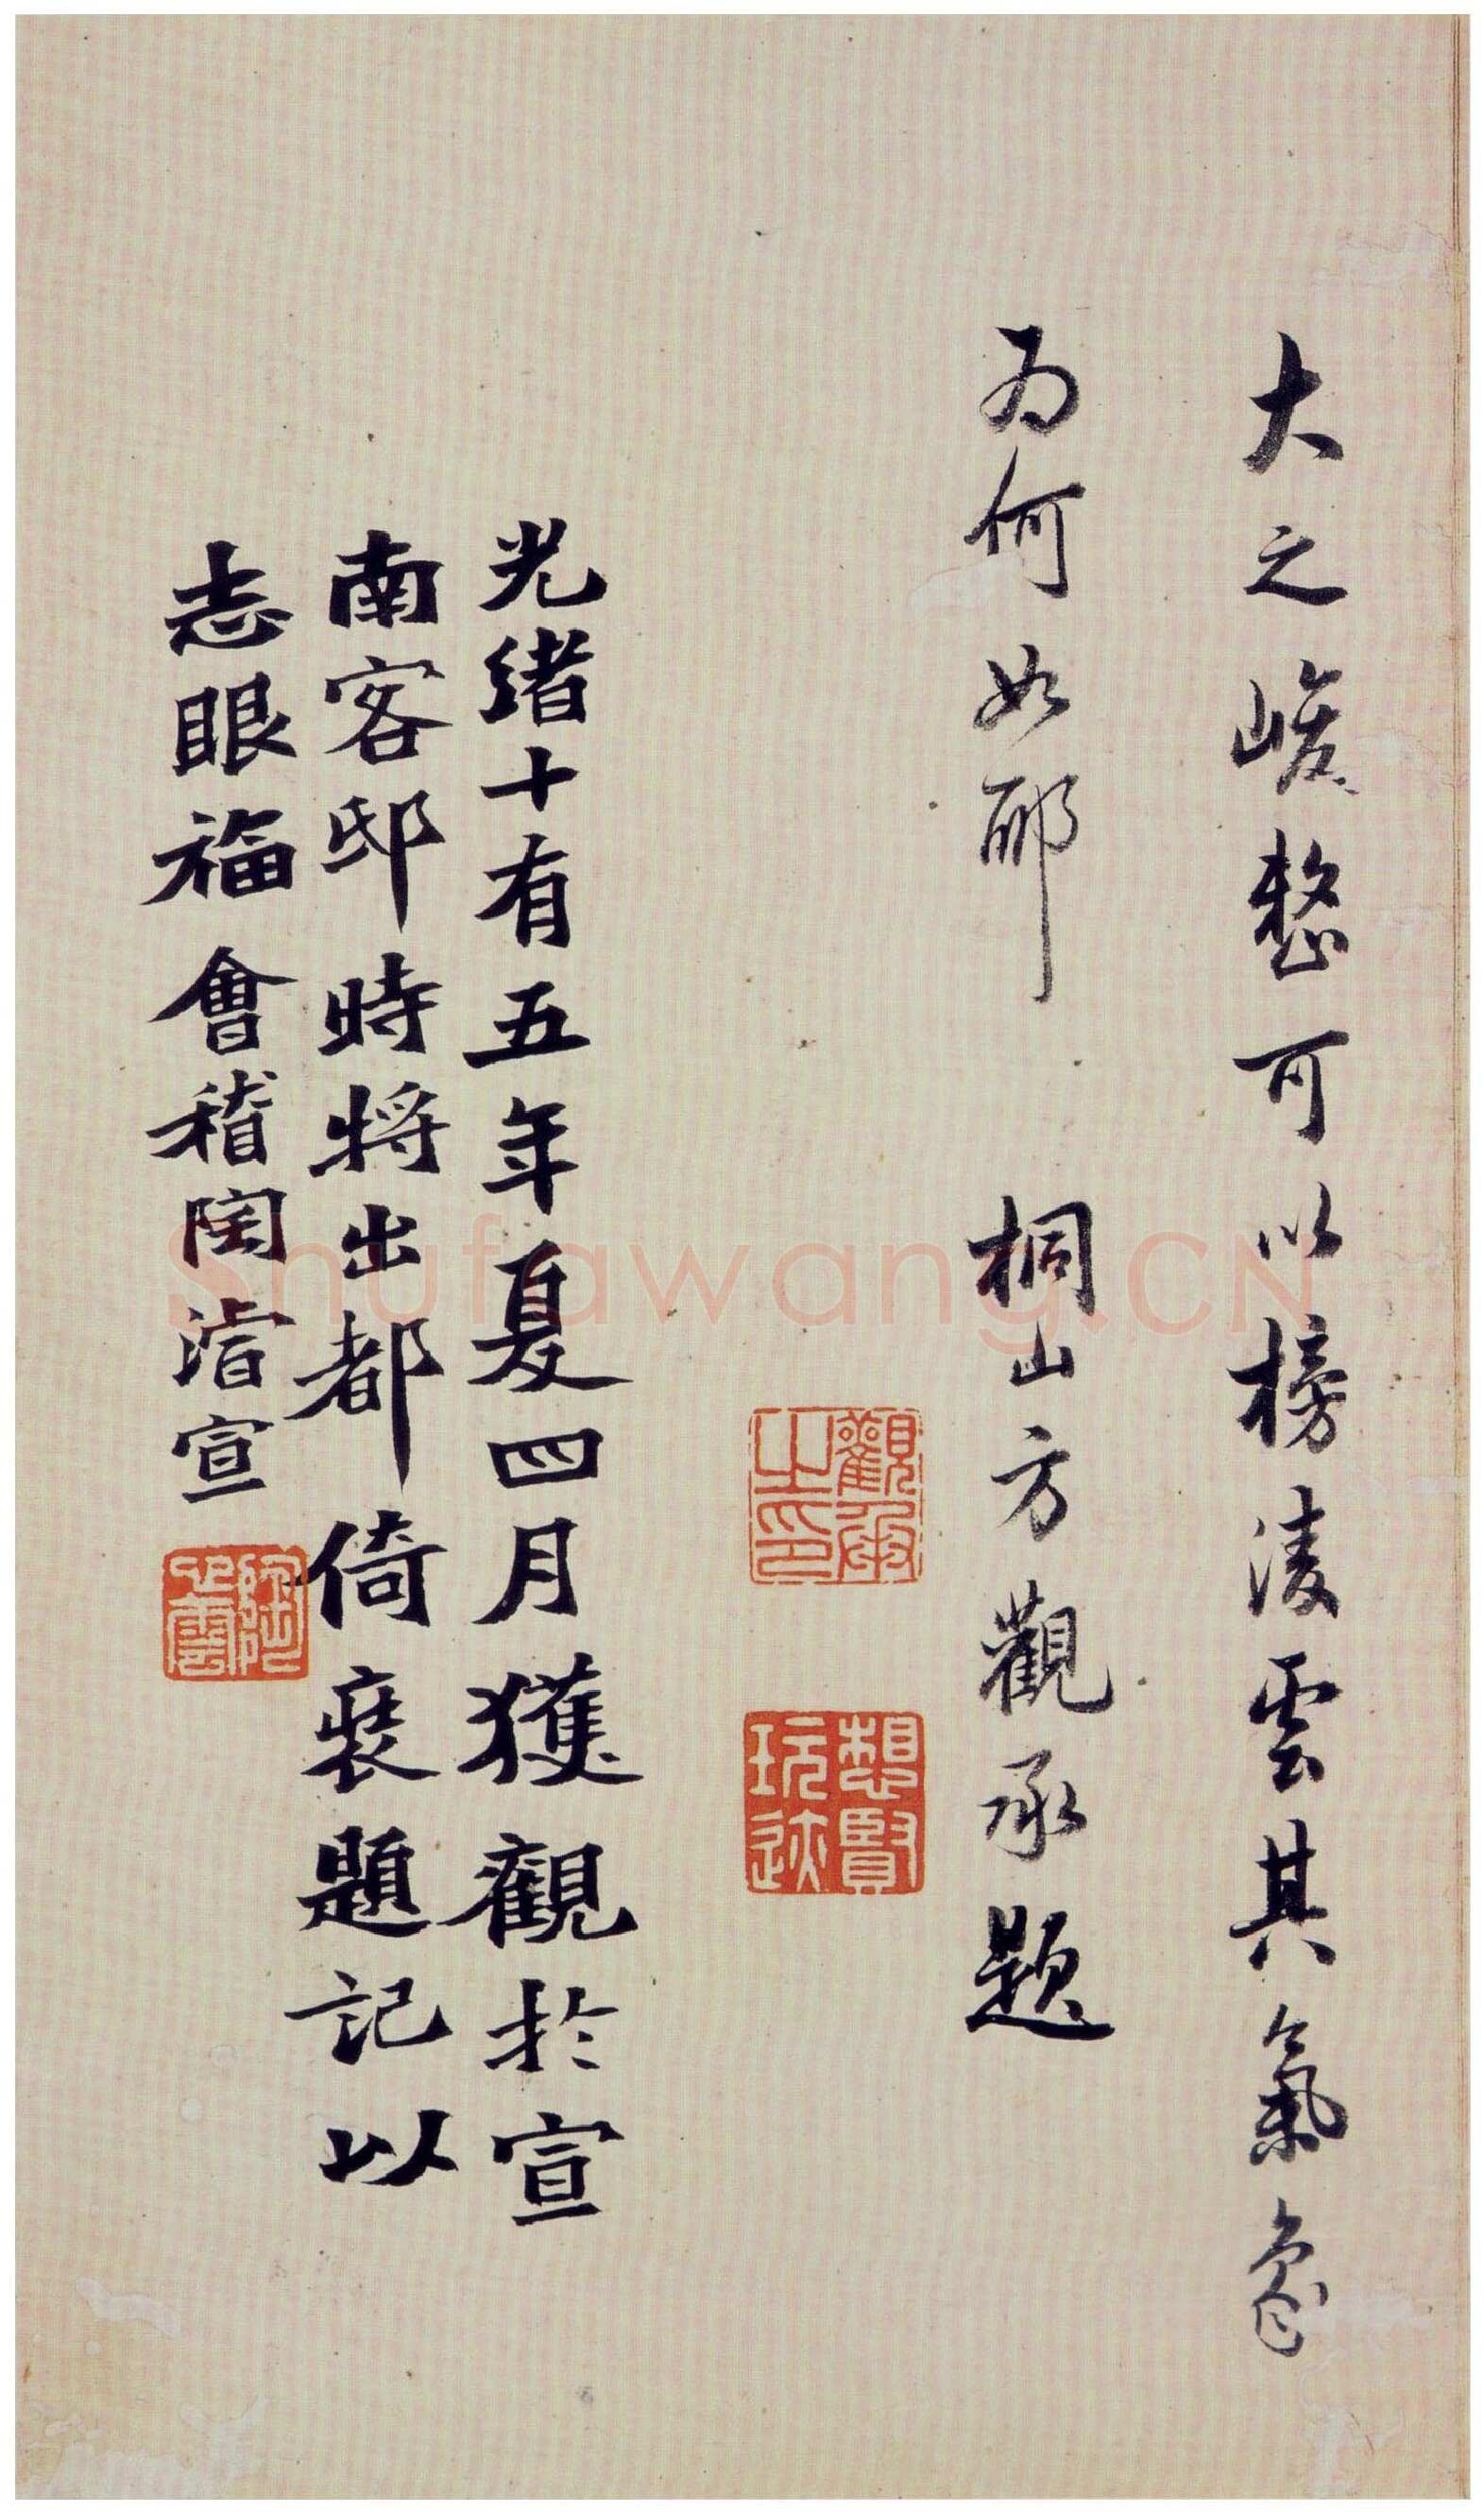 大之峻整可以榜淩雲其氣象
為何如耶 桐山方觀承題
觀承之印
想賢玩迹
光緒十有五年夏四月獲觀於宣
南客邸時將出都倚裝題記以
志眼福會稽陶濬宣
陶心雲
Shufawang.CN